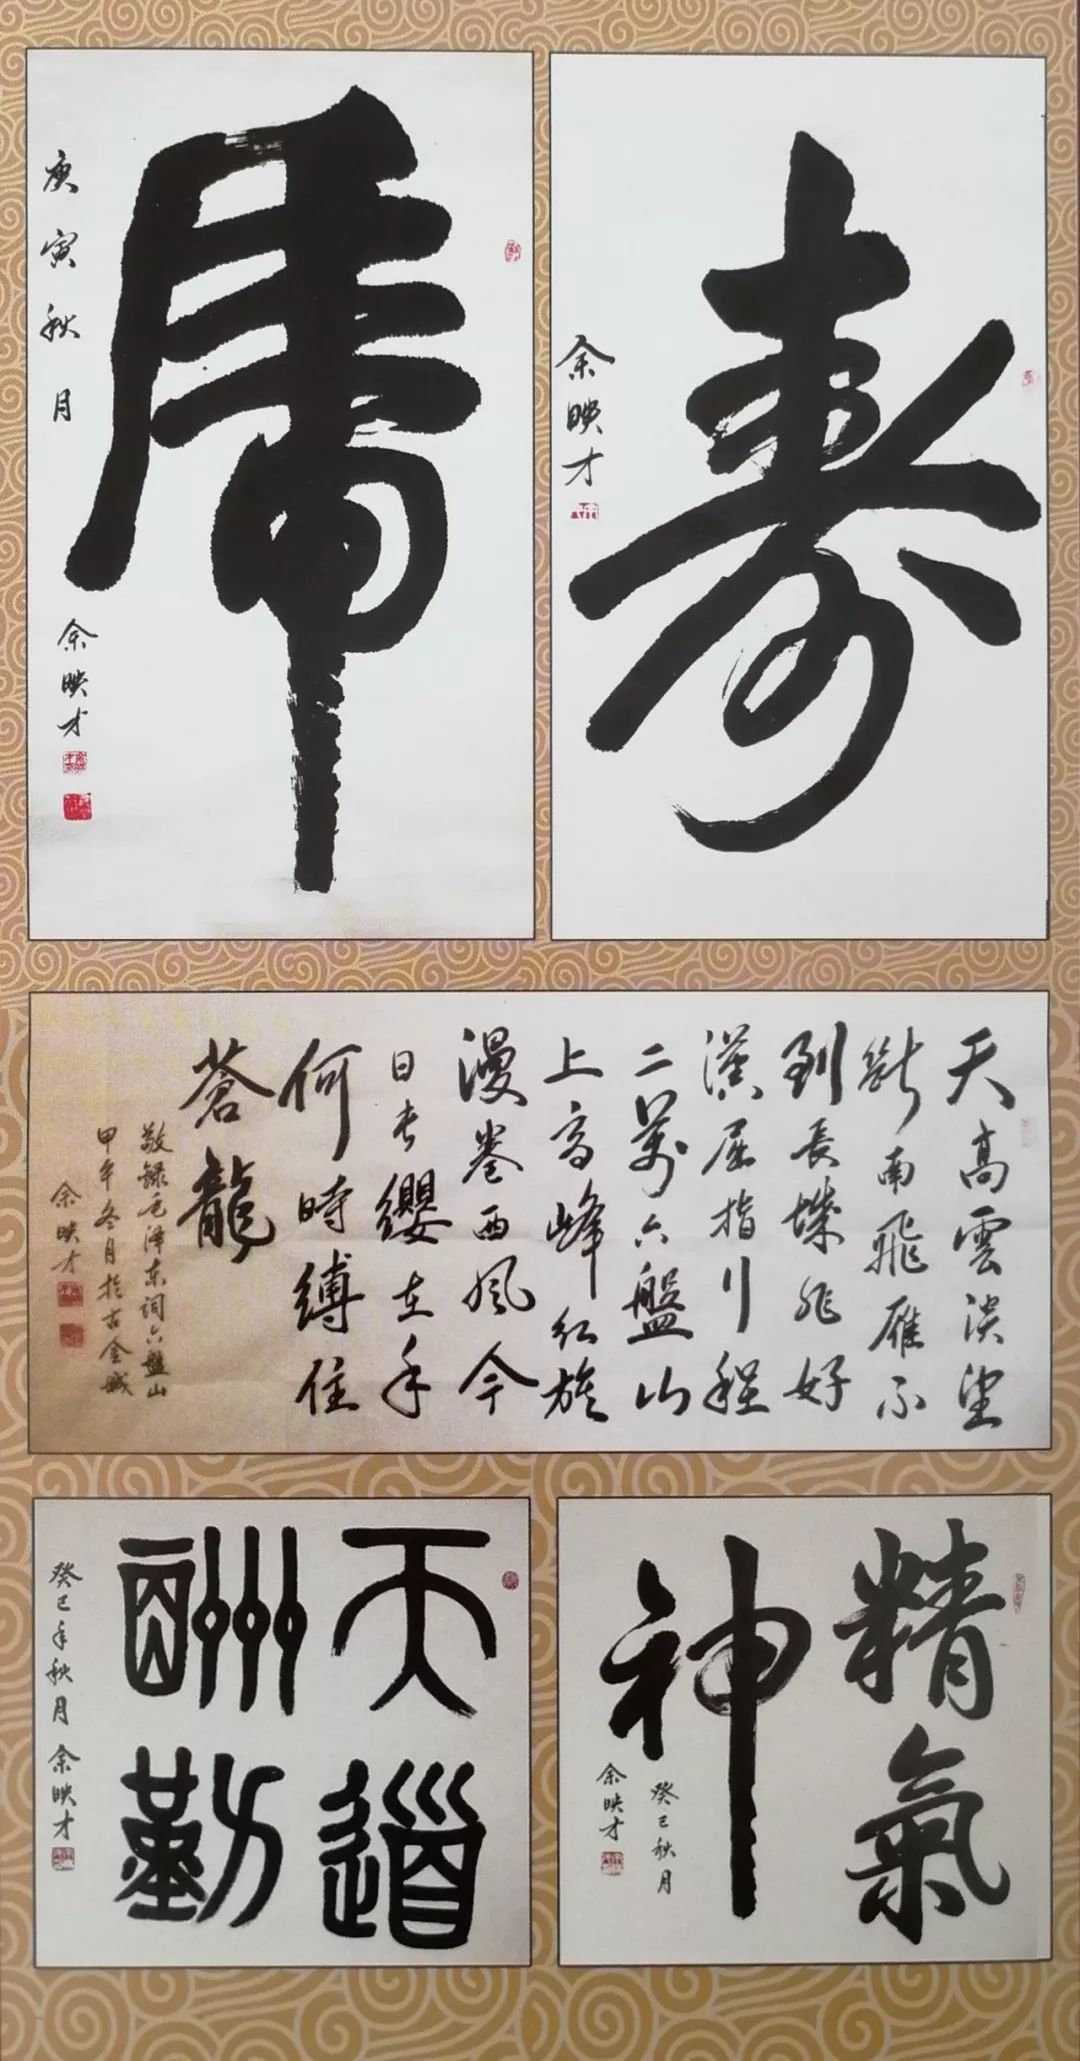 虎
庚寅秋月
余映才
寿
余映才
天高雲淡望
斷南飛雁不
到長城非好
漢屈指行程
二萬六盤山
上高峰紅旗
漫卷西風今
日長纓在手
何時縛住
蒼龍
敬録毛泽东词六盤山
甲午冬月於古金城
余映才
天道
酬勤
癸巳年秋月余映才
精氣
神
癸巳秋月
余映才